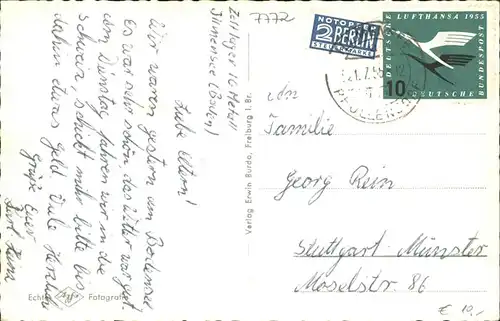 7772
Zeltlager 10 Metall
Illmensee (Baden)
Liebe Eltern!
Wir waren gestern am Bodensee.
Es war sehr schön das Wetter war gut.
am Dienstag fahren wir in die
Schweiz, schickt mir bitte bis
dahin etwas Geld. Viele Herzliche
Grüße Euer
Karl Heinz
Echte Agfa Fotografie
Verlag Erwin Burda, Freiburg i. Br.
NOTOPFER
2 BERLIN
STEUERMARKE
DEUTSCHE LUFTHANSA 1955
10
DEUTSCHE BUNDESPOST
PFULLENDORF
An
Familie
Georg Rein
Stuttgart-Münster
Moselstr. 86
€ 10,-